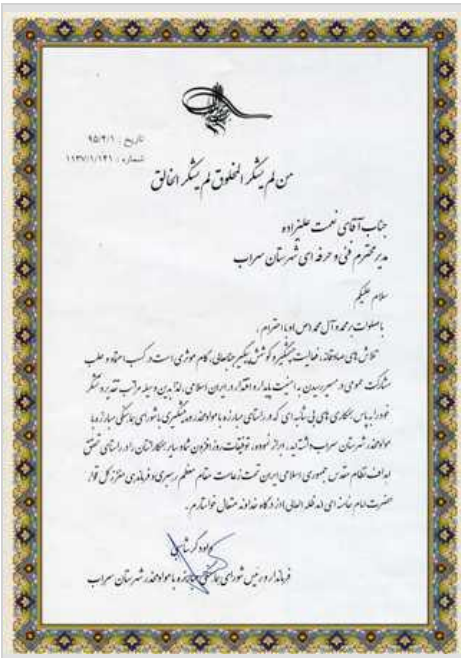 تاریخ : ۹۵/۴/۱
شماره : ۱۱۳۷/۱/۱۴۱
من لم یشکر المخلوق لم یشکر الخالق
جناب آقای نعمت علیزاده
مدیر محترم فنی و حرفه ای شهرستان سراب
سلام علیکم
با صلوات بر محمد و آل محمد (ص) و با احترام ،
تلاش های صادقانه، فعالیت چشمگیر و کوشش پیگیر جنابعالی، گام موثری است در کسب اعتماد و جلب
مشارکت عمومی در مسیر رسیدن به امنیت پایدار و اقتدار در ایران اسلامی، لذا بدین وسیله مراتب تقدیر و تشکر
خود را به پاس همکاری های بی شائبه ای که در راستای مبارزه با مواد مخدر و پیشگیری با شورای هماهنگی مبارزه با
مواد مخدر شهرستان سراب داشته اید، ابراز نموده، توفیقات روز افزون شما و سایر همکارانتان را در راستای تحقق
اهداف نظام مقدس جمهوری اسلامی ایران تحت زعامت مقام معظم رهبری و فرماندهی معزز کل قوا:
حضرت امام خامنه ای (مد ظله العالی) از درگاه خداوند متعال خواستارم .
فرماندار و رئیس شورای هماهنگی مبارزه با مواد مخدر شهرستان سراب